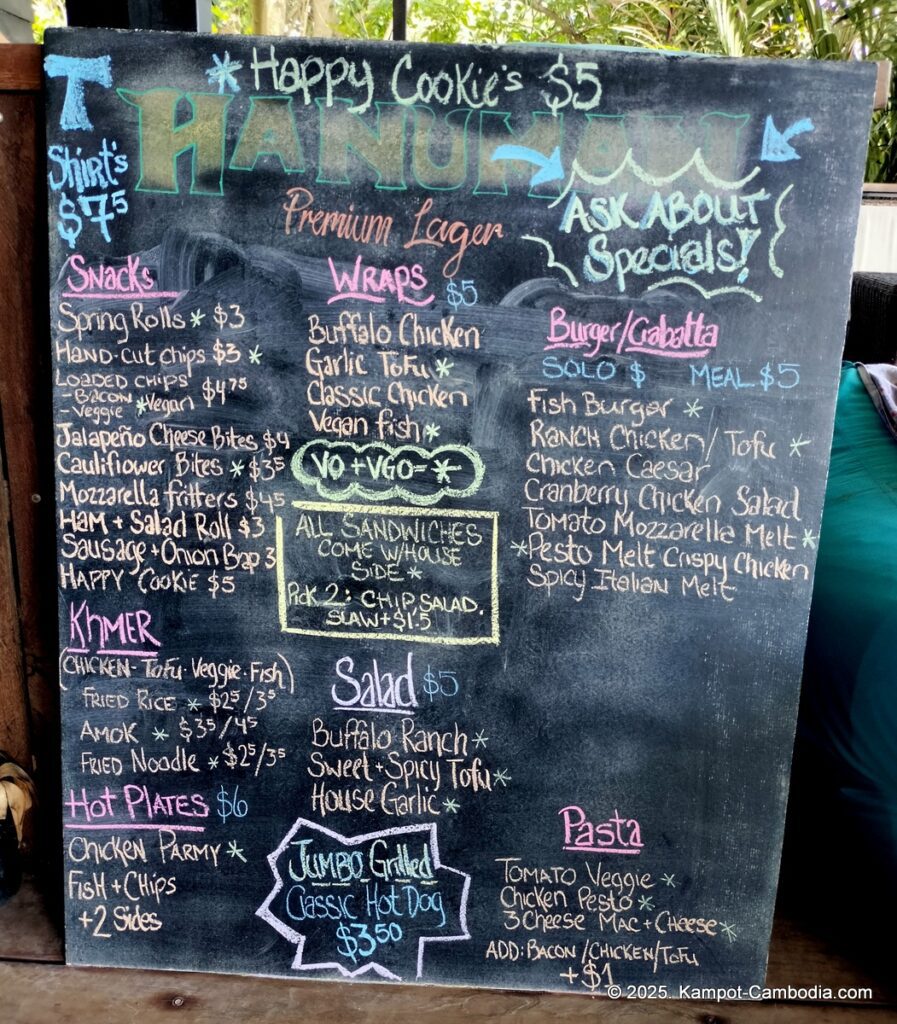 * Happy Cookie's $5
T
Shirt's
$7⁵
HANUMAN
Premium Lager
ASK ABOUT
Specials!
Snacks
Spring Rolls * $3
Hand-cut chips $3 *
LOADED CHIPS $4⁷⁵
- BACON *Vegan
- Veggie
Jalapeño Cheese Bites $4
Cauliflower Bites * $3⁵
Mozzarella fritters $4⁵
HAM + Salad Roll $3
Sausage + Onion Bap 3
HAPPY COOKIE $5
KHMER
(CHICKEN - Tofu · Veggie · Fish)
FRIED RICE * $2⁵/3⁵
AMOK * $3⁵/4⁵
FRIED Noodle * $2⁵/3⁵
Hot PLATES $6
Chicken Parmy *
FisH + Chips
+ 2 Sides
WRAPS $5
Buffalo Chicken
Garlic Tofu *
Classic Chicken
Vegan fish *
VO + VGO = *
ALL SANDWICHES
COME W/HOUSE
SIDE *
Pick 2: CHIP, SALAD,
SLAW + $1.5
Salad $5
Buffalo Ranch *
Sweet + Spicy Tofu *
House Garlic *
JUMBO Grilled
Classic Hot Dog
$3⁵⁰
Burger/Ciabatta
SOLO $ MEAL $5
Fish Burger *
RANCH Chicken / Tofu *
Chicken Caesar
Cranberry Chicken Salad
Tomato Mozzarella Melt *
*Pesto Melt Crispy Chicken
Spicy Italian Melt
Pasta
TOMATO Veggie *
Chicken Pesto *
3 Cheese Mac + Cheese *
ADD: BACON / CHICKEN / Tofu
+ $1
© 2025. Kampot-Cambodia.com